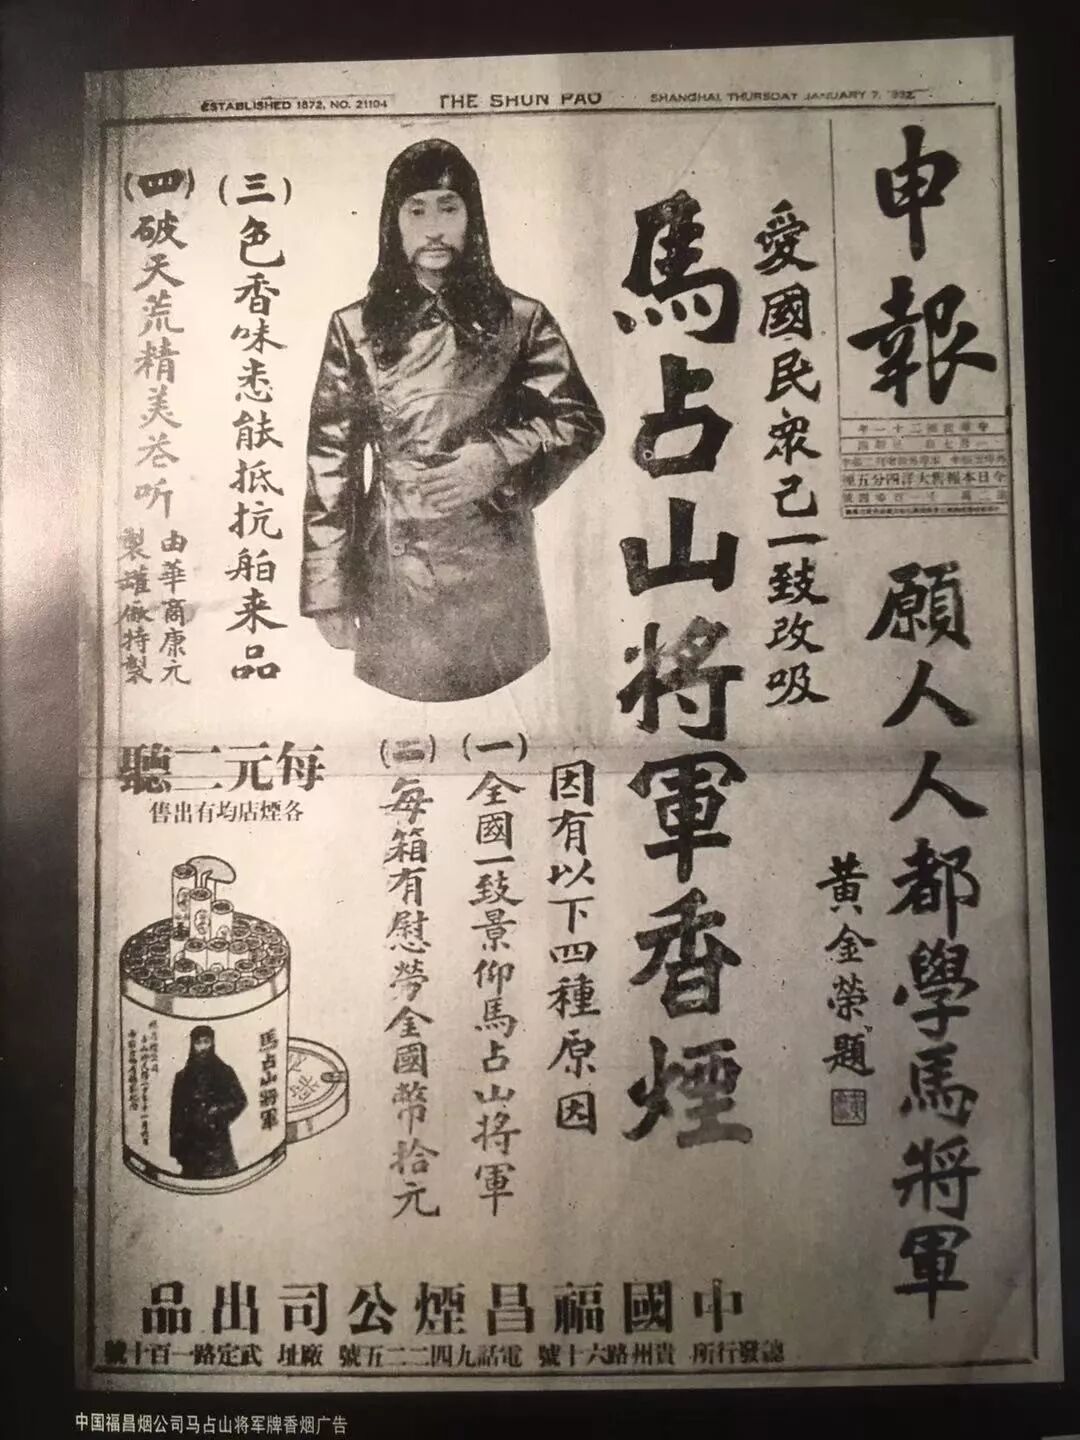 ESTABLISHED 1872, NO. 21104
THE SHUN PAO
SHANGHAI, THURSDAY JANUARY 7, 1932
申報
中華民國二十一年
一月七日 星期四
今日本報售大洋四分五厘
願人人都學馬將軍
黃金榮題
愛國民眾己一致改吸
馬占山將軍香煙
因有以下四種原因
(一)全國一致景仰馬占山將軍
(二)每箱有慰勞金國幣拾元
(三)色香味悉能抵抗舶来品
(四)破天荒精美卷听
由華商康元
製罐廠特製
每元二聽
各煙店均有出售
馬占山將軍
中國福昌煙公司出品
總發行所 貴州路六十號 電話九四二二五號 廠址 武定路一百十號
中国福昌烟公司马占山将军牌香烟广告